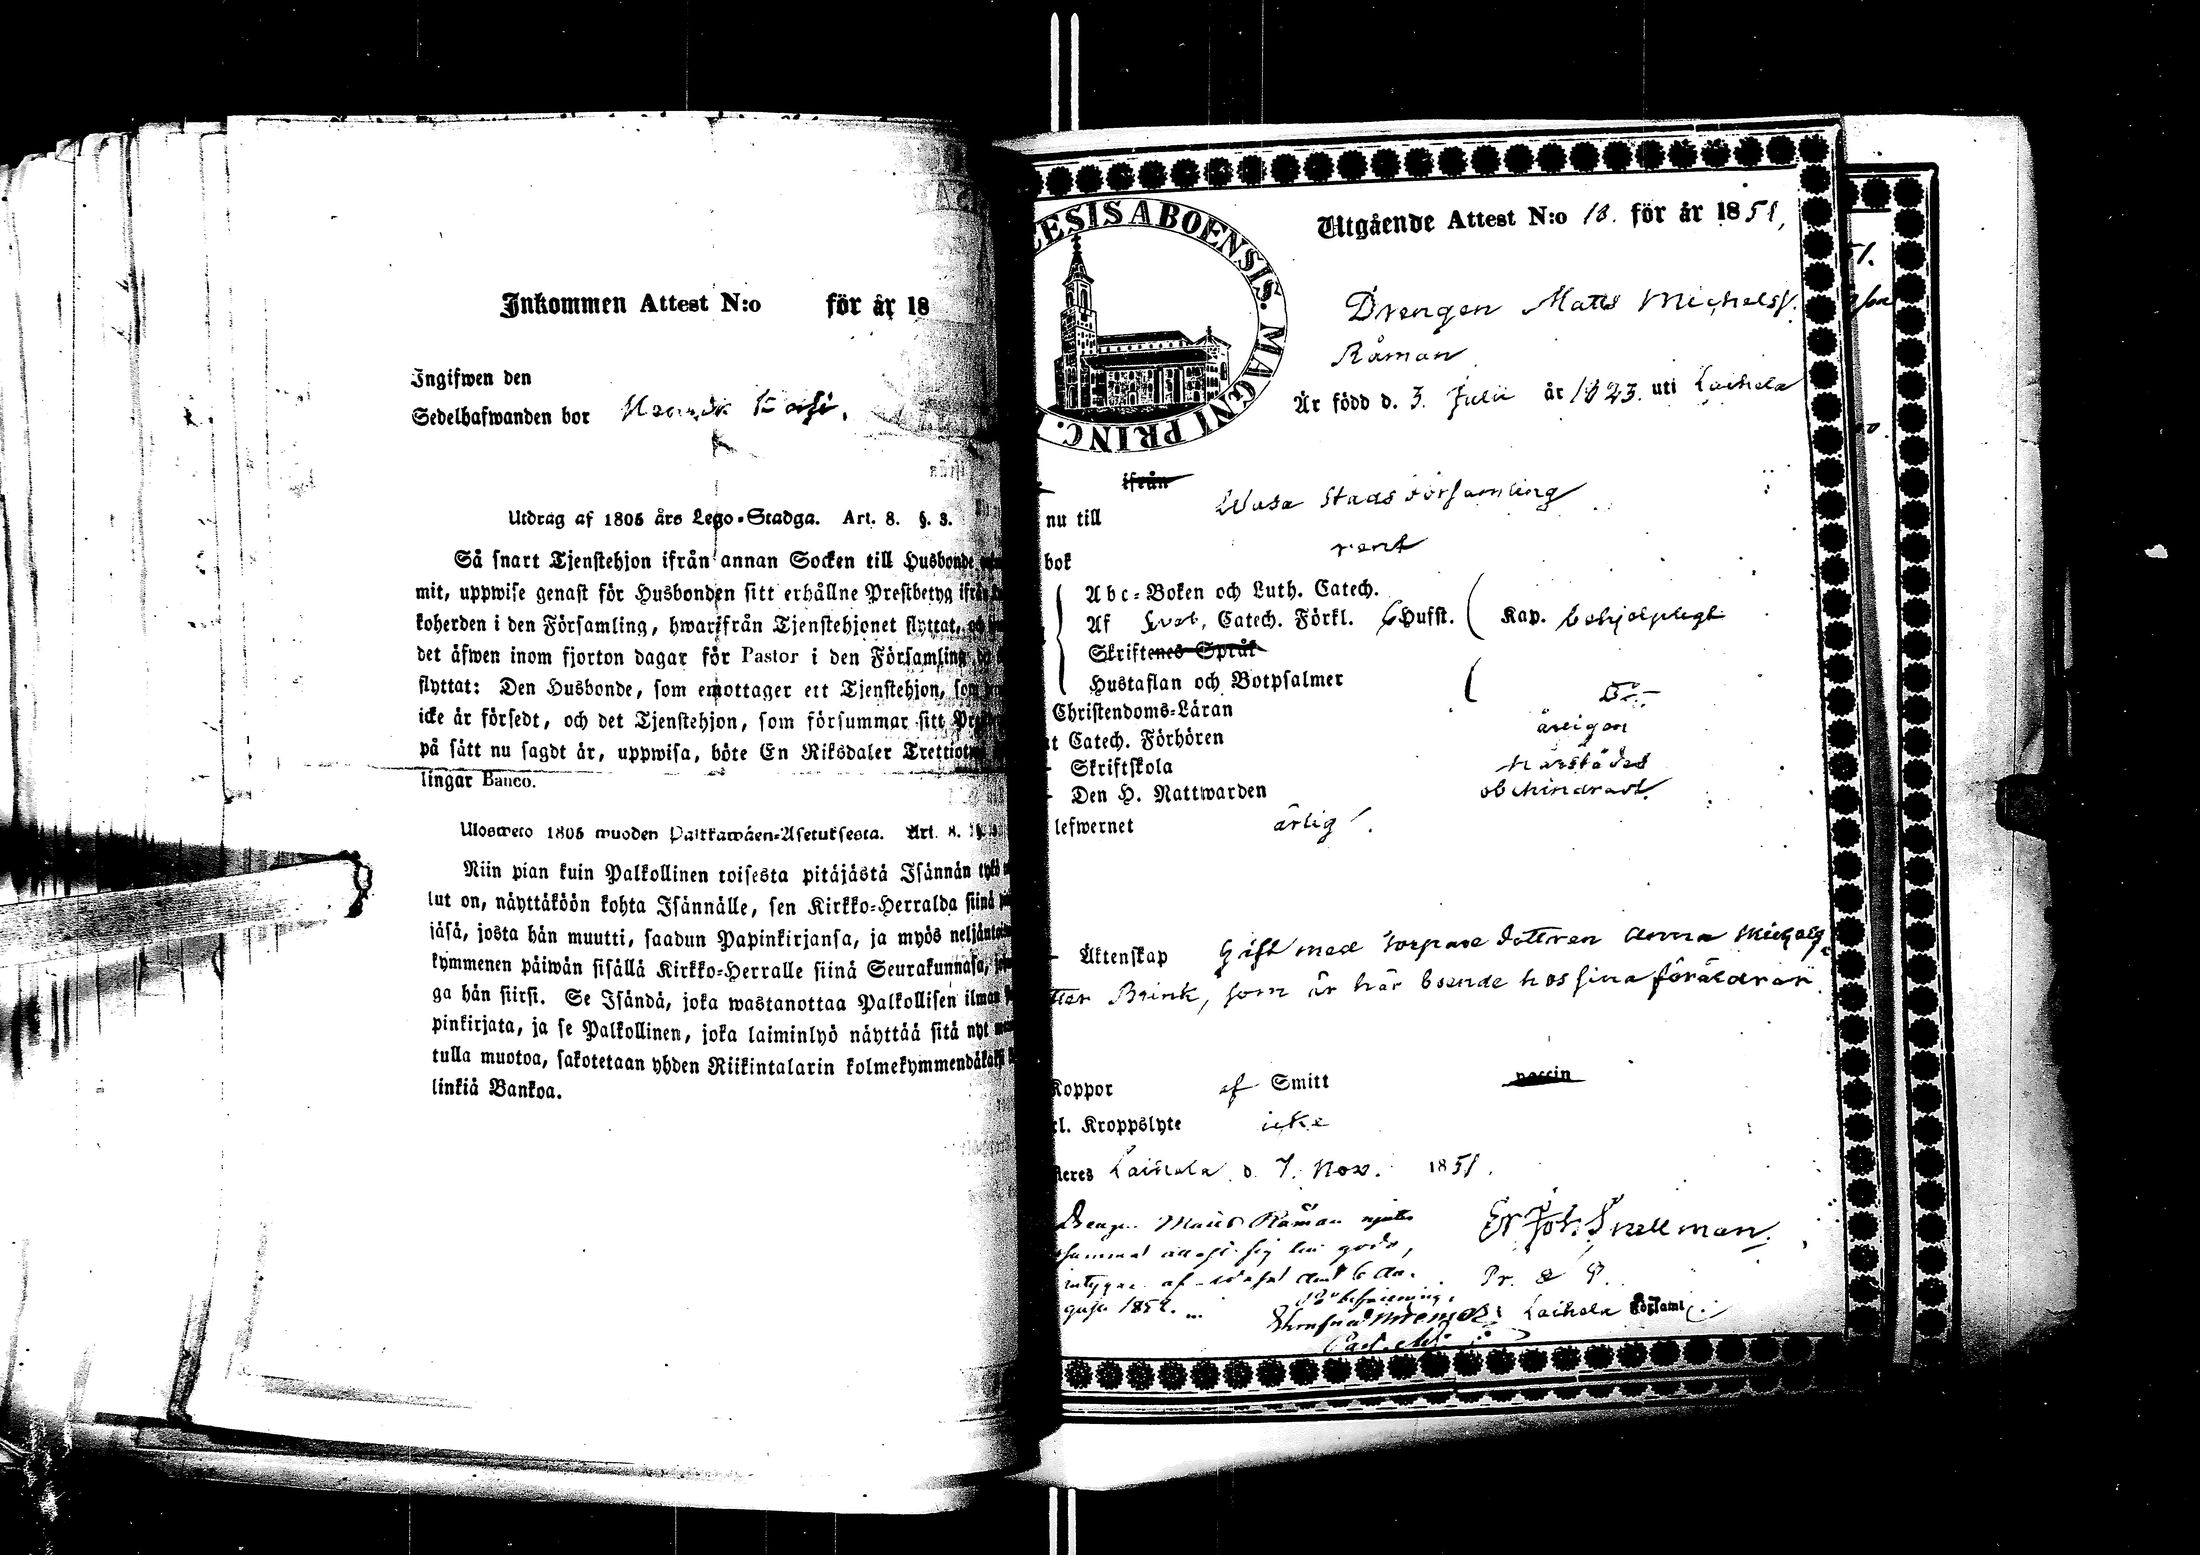 Inkommen Attest N:o för år 18
Ingifwen den
Sedelhafwanden bor
Utdrag af 1805 års Lego-Stadga. Art. 8. §. 3.
Så snart Tjenstehjon ifrån annan Socken till Husbonde
mit, uppwise genast för Husbonden sitt erhållne Prestbetyg ifrån
koherden i den Församling, hwarifrån Tjenstehjonet flyttat,
det äfwen inom fjorton dagar för Pastor i den Församling
flyttat: Den Husbonde, som emottager ett Tjenstehjon, som
icke är försedt, och det Tjenstehjon, som försummar sitt
på sätt nu sagdt är, uppwisa, böte En Riksdaler
lingar Banco.
Uloswето 1805 wuoden Palkkawäen-Asetuksesta. Art. 8.
Niin pian kuin Palkollinen toisesta pitäjästä Isännän työ
lut on, näyttäköön kohta Isännälle, sen Kirkko-Herralda siinä
jäsä, josta hän muutti, saadun Papinkirjansa, ja myös
kymmenen päiwän sisällä Kirkko-Herralle siinä Seurakunnasa,
ga hän siirsi. Se Isändä, joka wastanottaa Palkollisen ilman
pinkirjata, ja se Palkollinen, joka laiminlyö näyttää sitä nyt
tulla muotoa, sakotetaan yhden Riikintalarin
linkiä Bankoa.
ESIS ABOENSIS. MAGNI PRINC.
Utgående Attest N:o 18. för år 1851,
Drengen Matts Michelss.
Råman
Är född d. 3. Julii år 1823. uti Laihela
ifrån
nu till Wasa Stads Församling
bok rent
Abc-Boken och Luth. Catech.
Af Sveb. Catech. Förkl. 6 Hufst. Kap. behjelpligt
Skriftenes Språk
Hustaflan och Botpsalmer
Christendoms-Läran
Catech. Förhören årligen
Skriftskola härstädes
Den H. Nattwarden obehindrad
lefwernet ärlig
Äktenskap Gift med Torpare dottren Anna Michels
ter Brink, som är här boende hos sina föräldrar.
Koppor af Smitt passin
Kroppslyte icke
Laihela d. 7. Nov. 1851.
Er Joh. Snellman
Drengen Matts Råman
Pr. & P.
1852.
Laihela Församl.